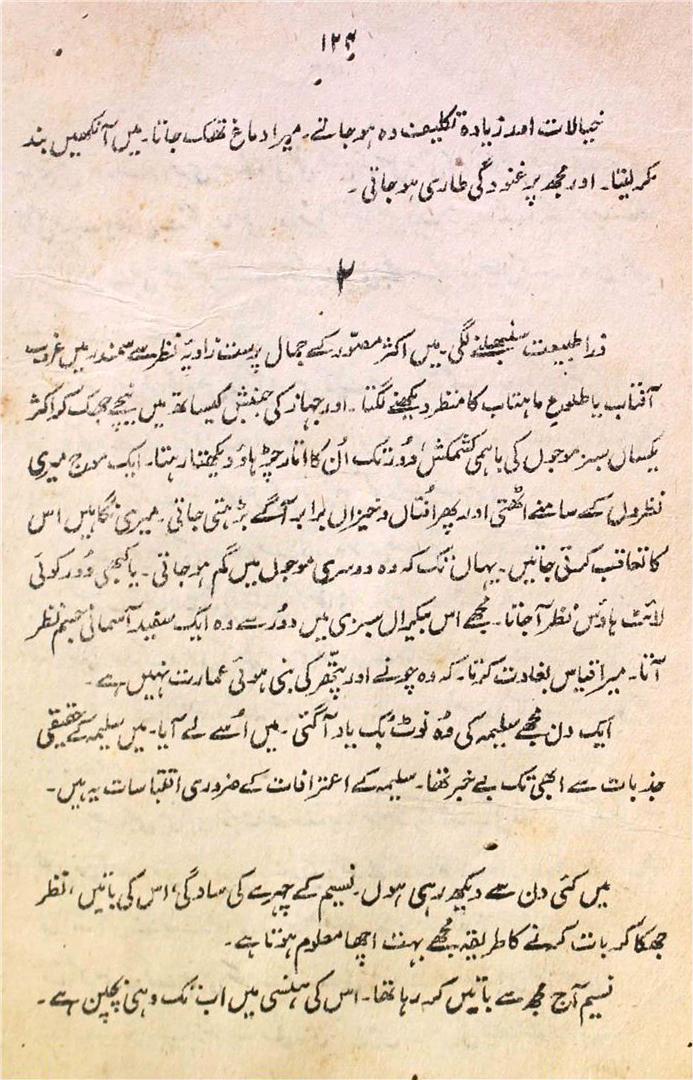 ۱۲۴
خیالات اور زیادہ تکلیف دہ ہو جاتے۔ میرا دماغ تھک جاتا۔ میں آنکھیں بند
کر لیتا۔ اور مجھ پر غنودگی طاری ہو جاتی ۔
۲
ذرا طبیعت سنبھلنے لگی۔ میں اکثر مصوّر کے جمال پرست زاویۂ نظر سے سمندر میں غروب
آفتاب یا طلوعِ ماہتاب کا منظر دیکھنے لگتا ۔ اور جہاز کی جنبش کیساتھ میں نیچے جھک کر اکثر
یکساں سبز موجوں کی باہمی کشمکش، دُور تک اُن کا اتار چڑھاؤ دیکھتا رہتا۔ ایک موج میری
نظروں کے سامنے اٹھتی اور پھر اُفتاں و خیزاں برابر آگے بڑھتی جاتی ۔ میری نگاہیں اس
کا تعاقب کرتی جاتیں ۔ یہاں تک کہ وہ دوسری موجوں میں گم ہو جاتی ۔ یا کبھی دُور کوئی
لائٹ ہاؤس نظر آ جاتا ۔ مجھے اس بیکراں سبزی میں دُور سے وہ ایک سفید آسمانی جسم نظر
آتا۔ میرا قیاس بغاوت کرتا۔ کہ وہ چونے اور پتھر کی بنی ہوئی عمارت نہیں ہے ۔
ایک دن مجھے سلیمہ کی وُہ نوٹ بُک یاد آ گئی ۔ میں اُسے لے آیا۔ میں سلیمہ کے حقیقی
جذبات سے ابھی تک بے خبر تھا۔ سلیمہ کے اعترافات کے ضروری اقتباسات یہ ہیں۔
میں کئی دن سے دیکھ رہی ہوں۔ نسیم کے چہرے کی سادگی، اس کی باتیں، نظر
جھکا کر بات کرنے کا طریقہ مجھے بہت اچھا معلوم ہوتا ہے۔
نسیم آج مجھ سے باتیں کر رہا تھا۔ اس کی ہنسی میں اب تک وہی بچپن ہے ۔